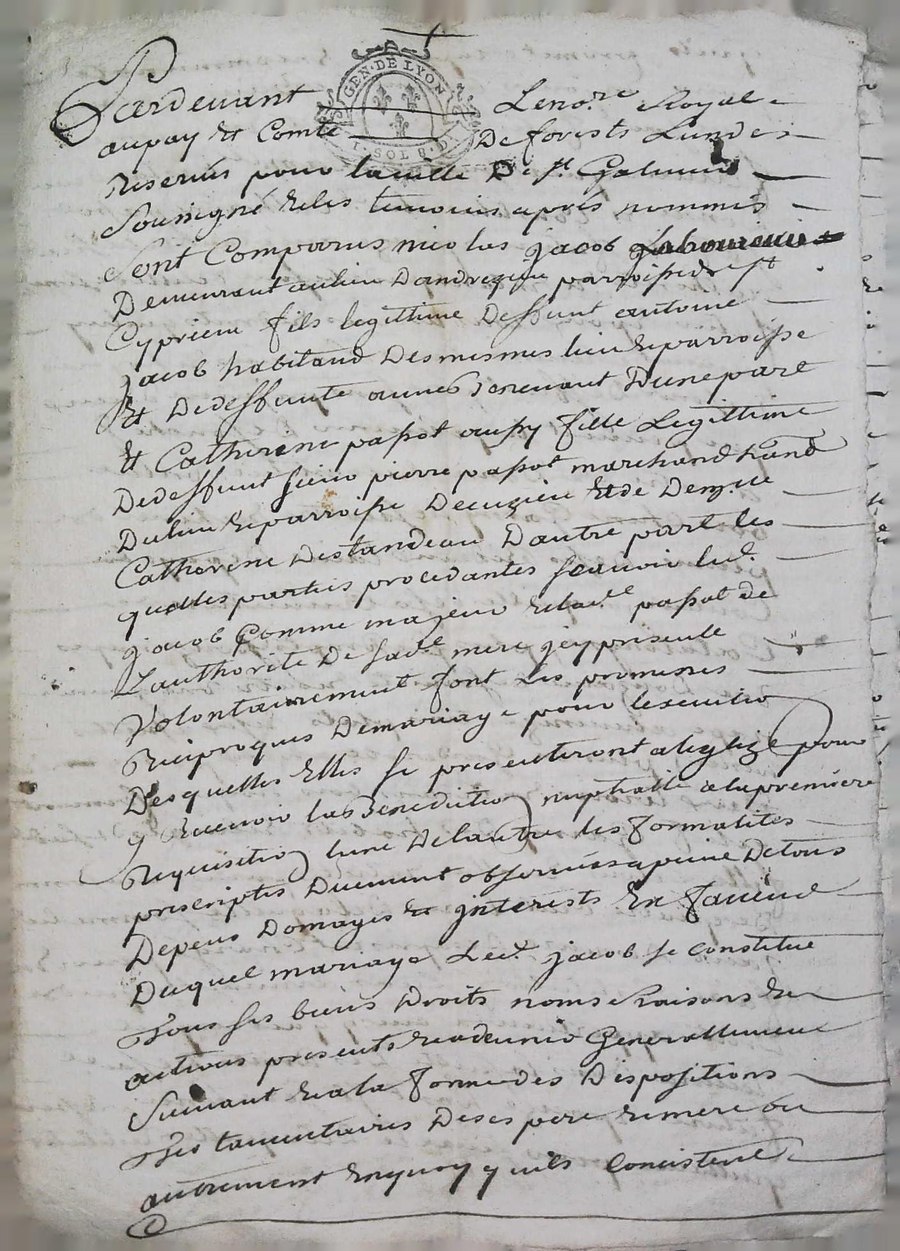 GEN. DE LYON
1. SOL
Pardevant Le no.re Royal
au pay et Comté De forests Lun des
Reservés pour la ville De s.t Galmier
Sousigné et les temoins après nommés
Sont Comparus nicolas jacob
Demeurant au lieu D'andrezieu parroisse de s.t
Cyprien fils legittime Deffunt antoine
jacob habitand Desmesmes lieu et parroisse
Et De deffunte annes Thevenant D'une part
Et Catherine passot aussy fille Legittime
De deffunt sieur pierre passot marchand
Du lieu et parroisse De cuzieu Et de Dem.lle
Catherine Destandeau D'autre part les
quelles parties procedantes scavoir led.
jacob Comme majeur et lad.te passot de
L'authorité De sad.te mere jcy présente
Volontairement font les promesses
Reciproques De mariage pour l'execution
Desquelles Elles se presenteront a leglize pour
y Recevoir la Benediction nuptialle a la premiere
Requisition lune De lautre les formalités
prescriptes Duement observées a peine De tous
Depens Domages et jnterests En faveur
Duquel mariage Led. jacob se constitue
Tous ses biens Droits noms Raisons et
actions presents et advenir Generallement
Suivant et a la forme des Dispositions
Testamentaires De ses pere et mere ou
autrement En quoy quils Consistent